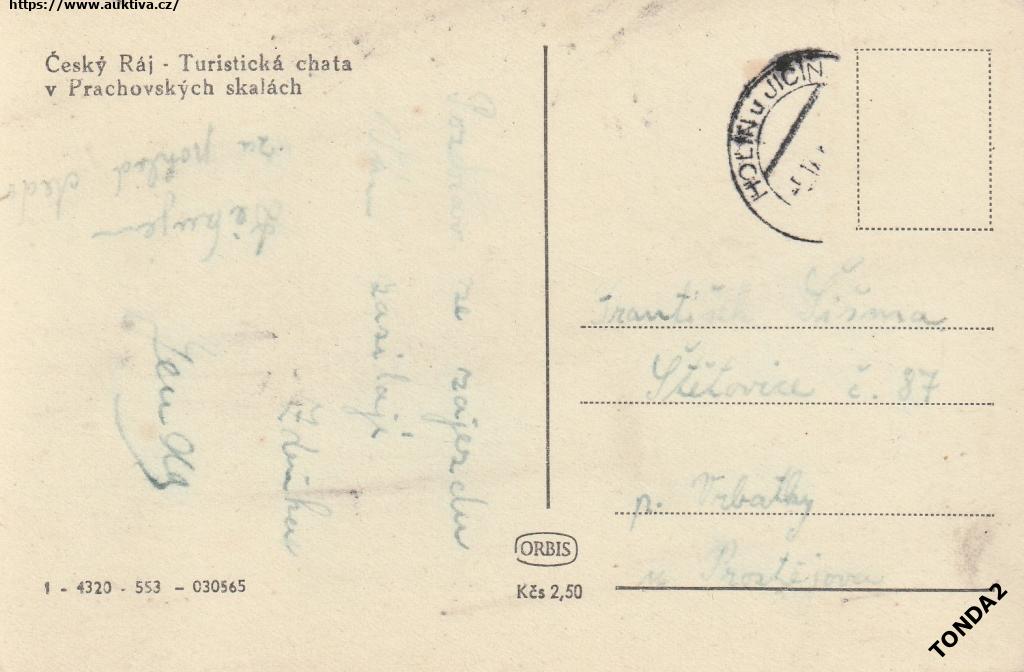 https://www.auktiva.cz/
Český Ráj - Turistická chata
v Prachovských skalách
HOLÍN u JIČÍN
Pozdrav ze zájezdu
Vám zasílají
Děkujem
za pohled
František Šišma
Štětovice č. 87
p. Vrbatky
u Prostějova
ORBIS
Kčs 2,50
1 - 4320 - 553 - 030565
TONDA2